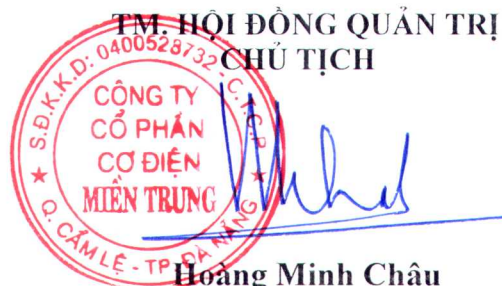 TM. HỘI ĐỒNG QUẢN TRỊ
CHỦ TỊCH
S.Đ.K.K.D: 0400528732 - C.T.C.P
CÔNG TY
CỔ PHẦN
CƠ ĐIỆN
MIỀN TRUNG
Q. CẨM LỆ - TP. ĐÀ NẴNG
Hoàng Minh Châu